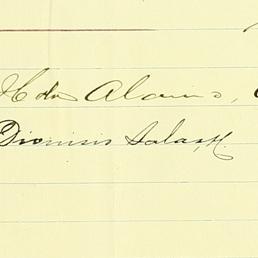 Hda Alamo,
Dionisio Salas, H.